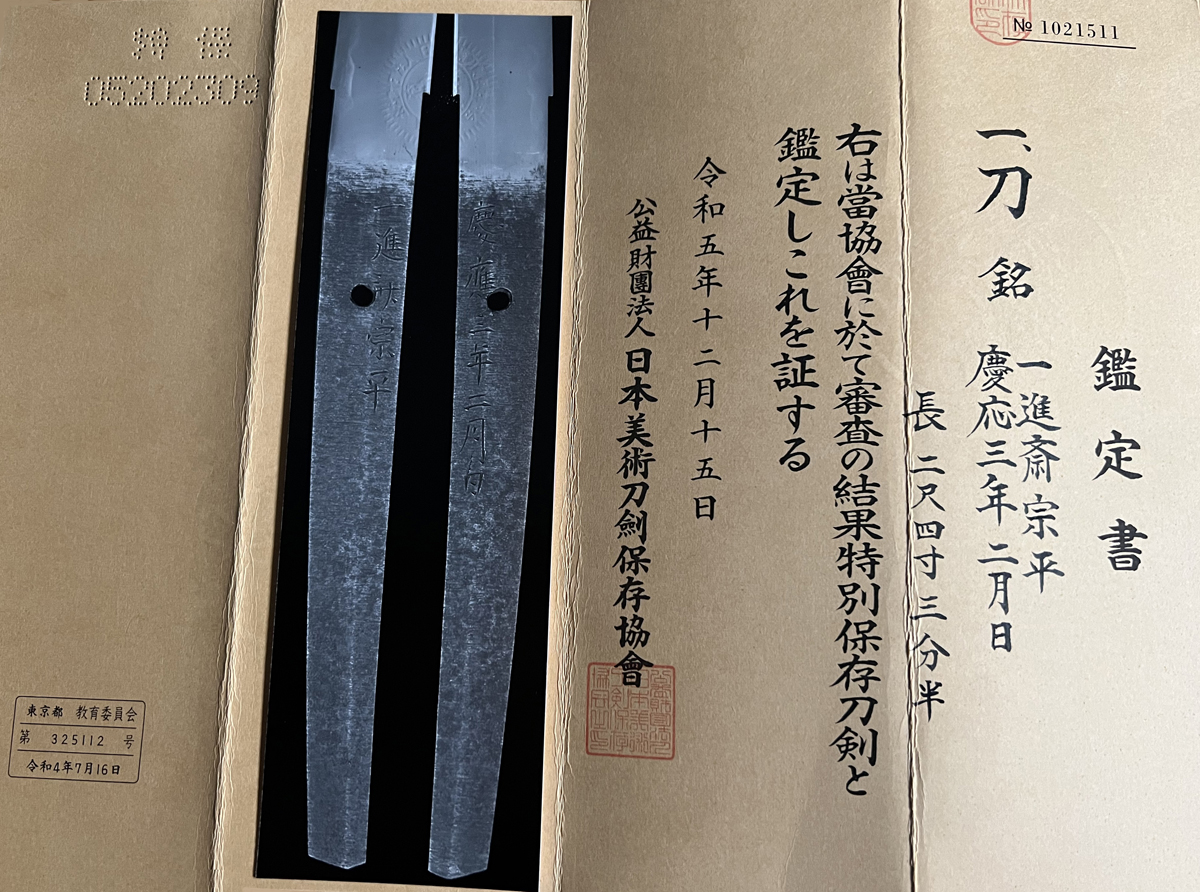 № 1021511
鑑定書
一、刀 銘
一進斎宗平
慶応三年二月日
長 二尺四寸三分半
右は當協會に於て審査の結果特別保存刀剣と
鑑定しこれを証する
令和五年十二月十五日
公益財團法人 日本美術刀劍保存協會
慶應三年二月日
一進斎宗平
特保
05202309
東京都 教育委員会
第 325112 号
令和4年7月16日